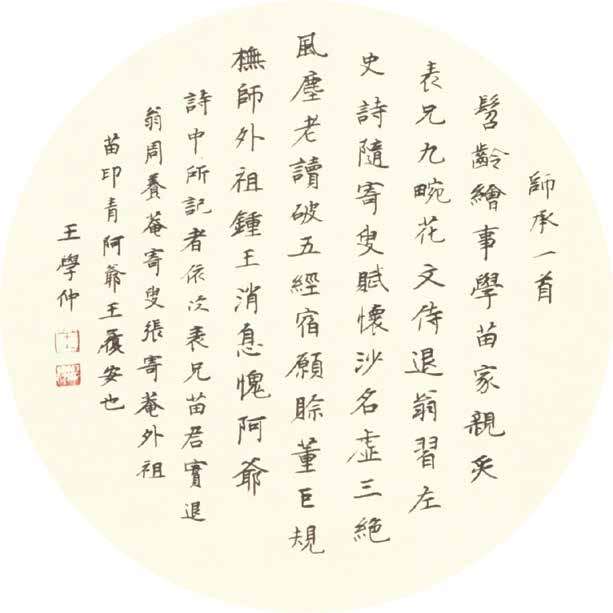 師承一首
髫齡繪事學苗家親炙
表兄九畹花文侍退翁習左
史詩隨寄叟賦懷沙名虛三絕
風塵老讀破五經宿願賒董巨規
橅師外祖鍾王消息愧阿爺
詩中所記者依次表兄苗君實退
翁周養菴寄叟張寄菴外祖
苗印青阿爺王履安也
王學仲